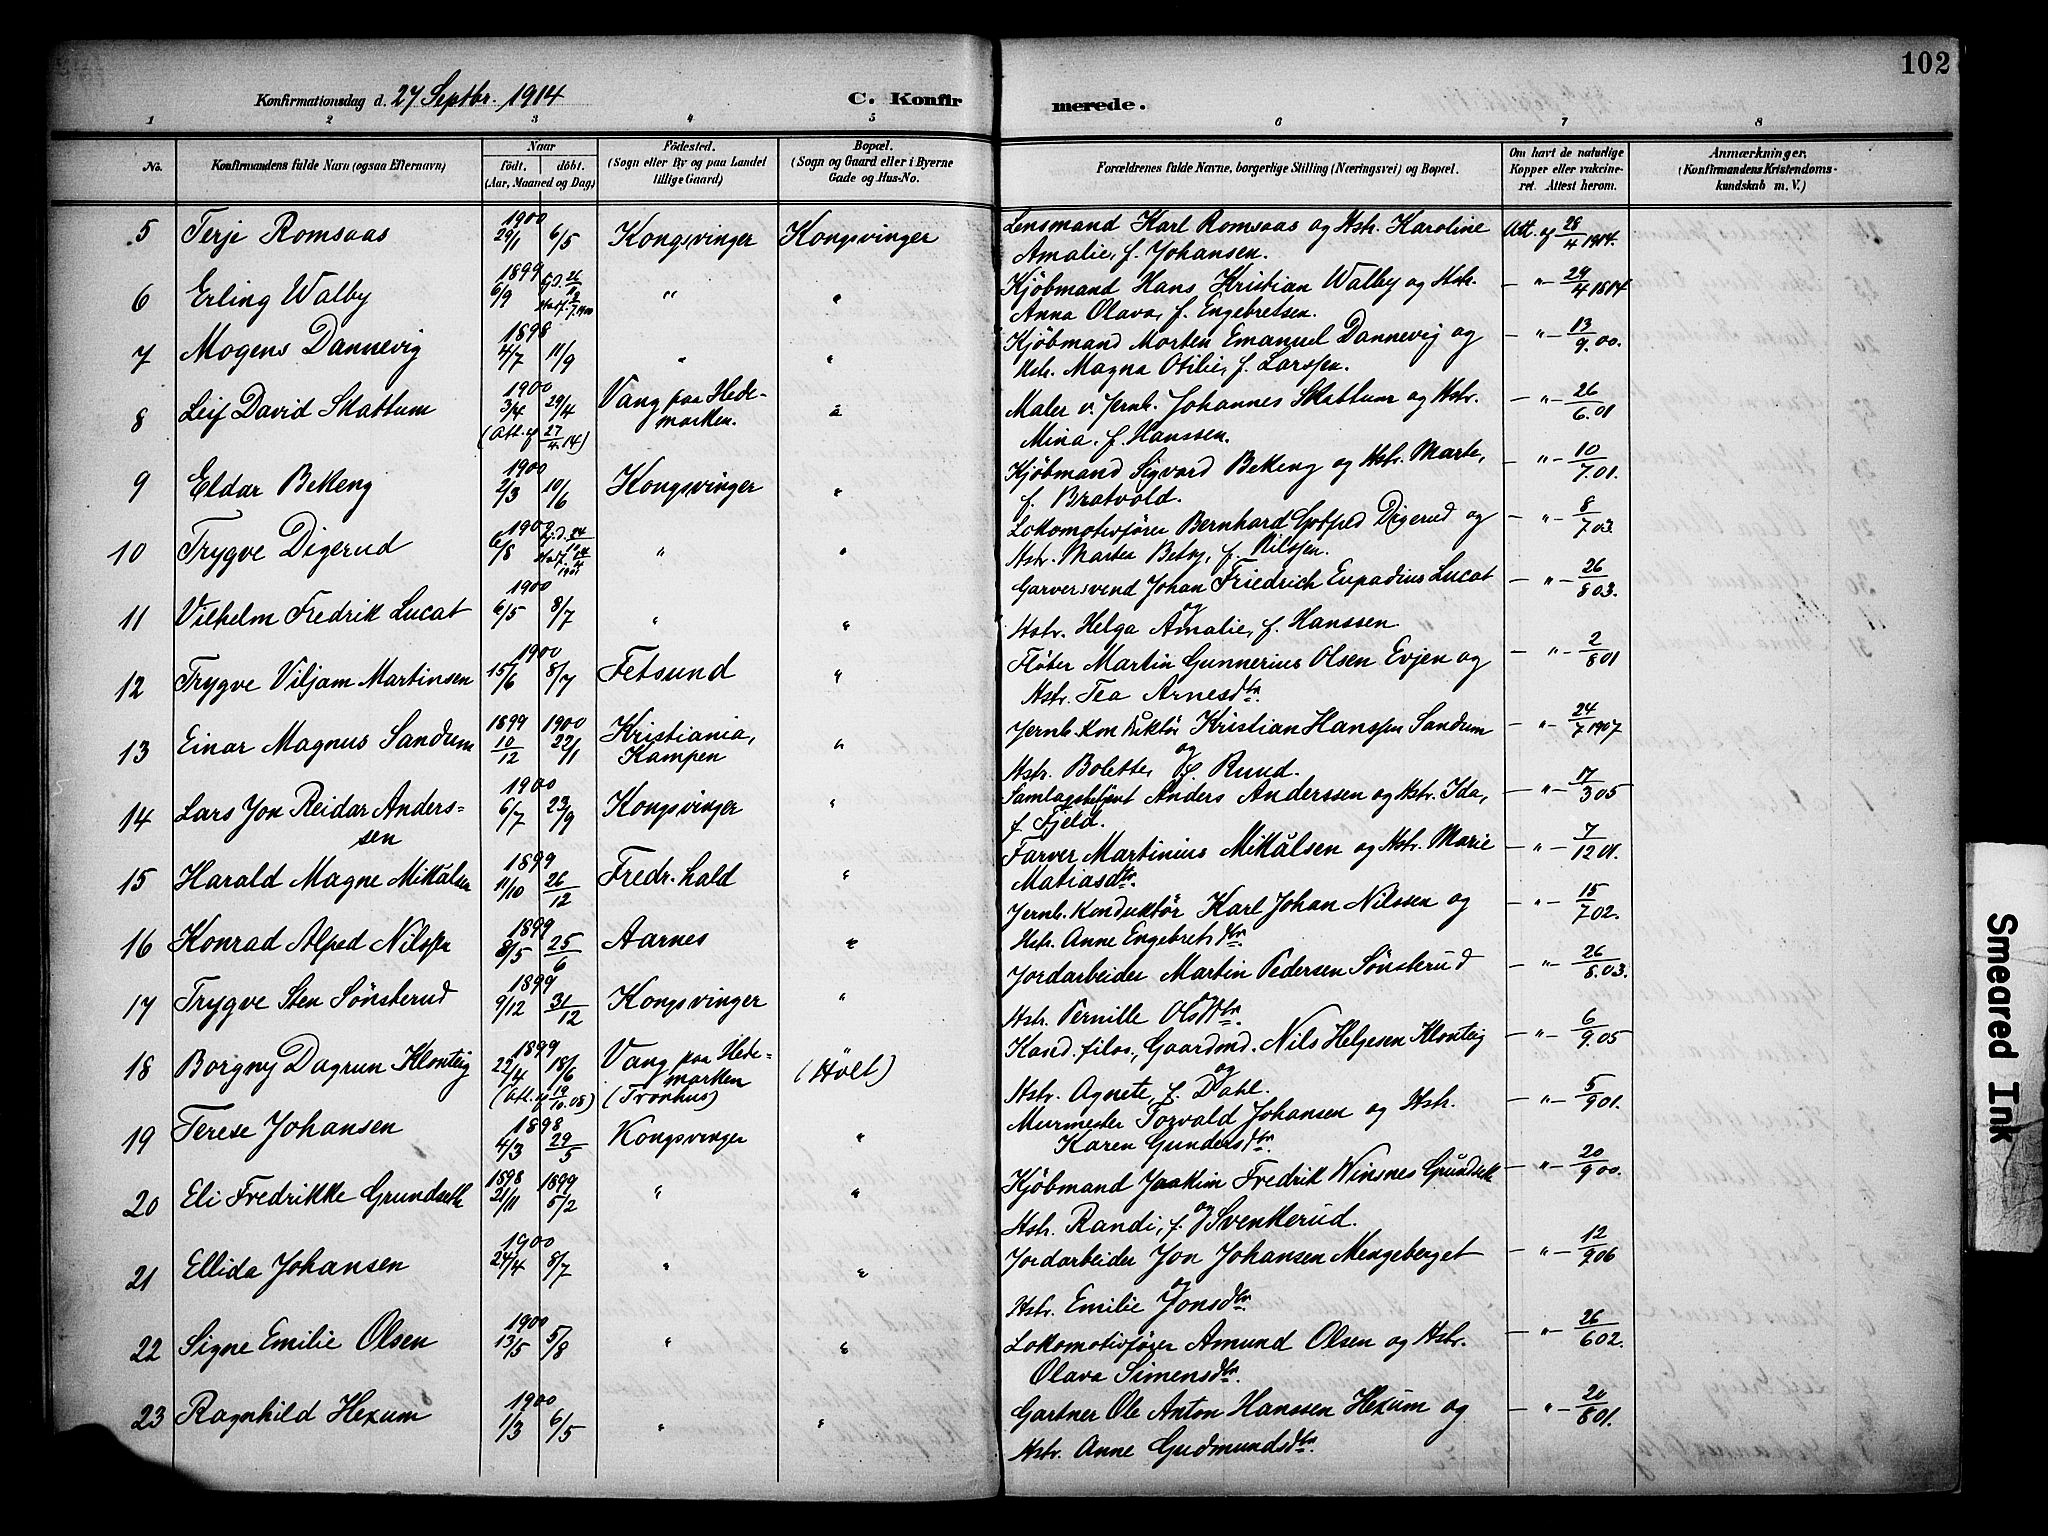 102
Konfirmationsdag d. 27 Septbr. 1914 C. Konfirmerede.
1 2 3 4 5 6 7 8
No. Konfirmandens fulde Navn (ogsaa Efternavn) Naar født, døbt. (Aar, Maaned og Dag) Fødested. (Sogn eller By og paa Landet tillige Gaard) Bopæl. (Sogn og Gaard eller i Byerne Gade og Hus-No. Forældrenes fulde Navne, borgerlige Stilling (Næringsvei) og Bopæl. Om havt de naturlige Kopper eller vakcineret. Attest herom. Anmærkninger. (Konfirmandens Kristendomskundskab m. V.)
5 Terje Romsaas 1900 29/1 6/5 Kongsvinger Kongsvinger Lensmand Karl Romsaas og Hstr. Karoline Att. af 28/4 1914.
Amalie, f. Johansen.
6 Erling Walby 1899 6/9 " " Kjöbmand Hans Kristian Walby og Hstr. — " — 29/4 1914
Anna Olava, f. Engebretsen.
7 Mogens Dannevig 1898 4/7 11/9 " " Kjöbmand Morten Emanuel Dannevig og — " — 13/9.00.
Hstr. Magna Otilie, f. Larssen.
8 Leif David Skattum 1900 3/4 29/4 (Att. af 27/4.14) Vang paa Hedemarken. " Maler v. Jernb. Johannes Skattum og Hstr. — " — 26/6.01
Mina, f. Hanssen.
9 Eldar Bekeng 1900 2/3 10/6 Kongsvinger " Kjöbmand Sigvard Bekeng og Hstr. Marte, — " — 10/7.01.
f. Bratvold.
10 Trygve Digerud 1900 6/8 " " Lokomotivförer Bernhard Gotfred Digerud og — " — 8/7.03.
Hstr. Martea Betsy, f. Nilssen.
11 Vilhelm Fredrik Lucat 1900 6/5 8/7 " " Garversvend Johan Friedrich Lucat — " — 26/8 03.
og
Hstr. Helga Amalie, f. Hanssen.
12 Trygve Viljam Martinsen 1900 15/6 8/7 Fetsund " Fløter Martin Gunnerius Olsen Evjen og — " — 2/8 01
Hstr. Tea Arnesdtr.
13 Einar Magnus Sandum 1899 10/12 1900 22/1 Kristiania, Kampen " Jernb. Konduktör Kristian Hanssen Sandum — " — 24/7 1907
og
Hstr. Bolette, f. Ruud.
14 Lars Jon Reidar Anderssen 1900 6/7 23/9 Kongsvinger " Samlagsbetjent Anders Anderssen og Hstr. Ida, — " — 17/3 05
f. Fjeld.
15 Harald Magne Mikkälsen 1899 11/10 26/12 Fredr.hald " Farver Martinius Mikälsen og Hstr. Marie — " — 7/12 01.
Matiasdtr.
16 Konrad Alfred Nilssen 1899 8/5 25/6 Aarnes " Jernb. Konduktör Karl Johan Nilssen og — " — 15/7 02.
Hstr. Anne Engebretsdtr.
17 Trygve Sten Sønsterud 1899 9/12 31/12 Kongsvinger " Jordarbeider Martin Pedersen Sønsterud — " — 26/8.03.
og
Hstr. Pernille Olsdtr.
18 Borgny Dagrun Klonteig 1899 22/4 18/6 (Att. af 19/10.08) Vang paa Hedemarken (Tronhus) (Holt) Kand. filos., Gaardmd. Nils Helgesen Klonteig — " — 6/9.05
og
Hstr. Agnete, f. Dahl.
19 Terese Johansen 1898 4/3 29/5 Kongsvinger " Murmester Torvald Johansen og Hstr. — " — 5/9 01.
Karen Gundersdtr.
20 Eli Fredrikke Grundseth 1898 21/11 1899 5/2 " " Kjöbmand Joakim Fredrik Winsnes Grundseth — " — 20/9 00.
og
Hstr. Randi, f. Svenkerud.
21 Ellida Johansen 1900 24/4 8/7 " " Jordarbeider Jon Johansen Mengeberget — " — 12/9 06
og
Hstr. Emilie Jonsdtr.
22 Signe Emilie Olsen 1900 13/5 5/8 " " Lokomotivförer Amund Olsen og Hstr. — " — 26/6 02.
Olava Simensdtr.
23 Ragnhild Hexum 1900 1/3 6/5 " " Gartner Ole Anton Hanssen Hexum og — " — 20/8 01.
Hstr. Anne Gudmundsdtr.
Smeared Ink